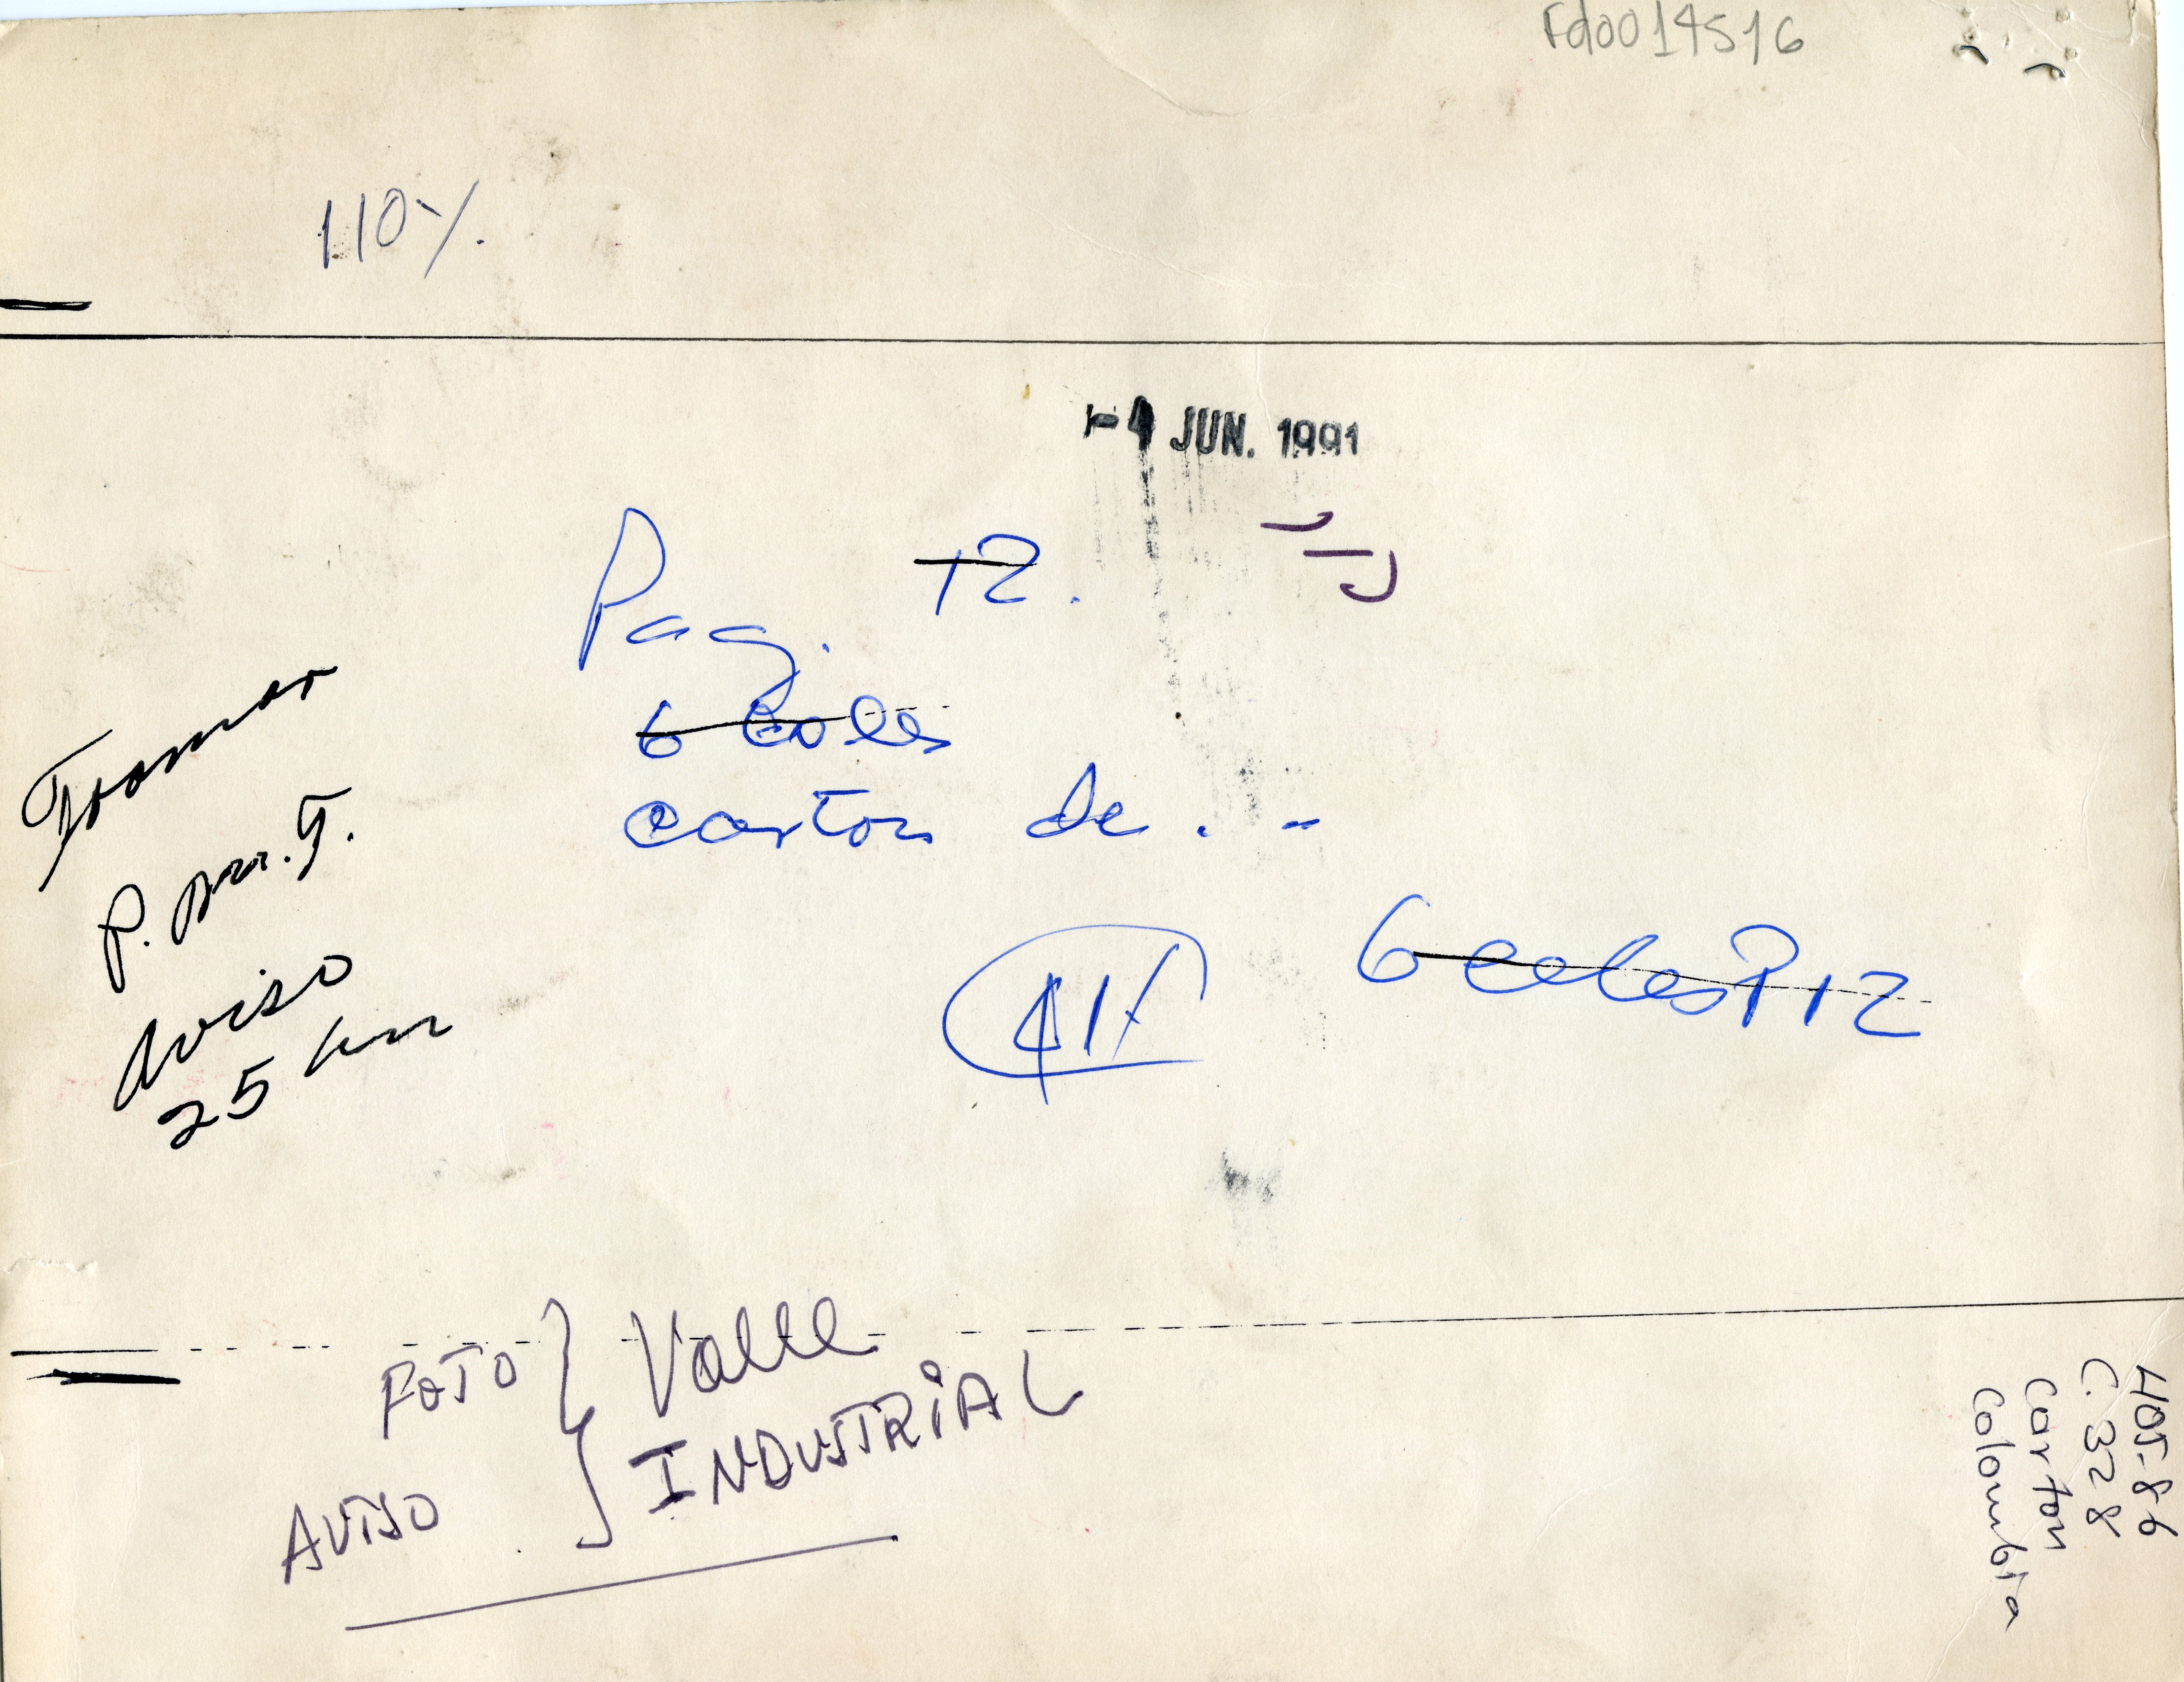 Fd0014516
110%
-4 JUN. 1991
Pag. 12.
6 Cols
carton de . -
6 coles P 12
Tramar
P.
Aviso
25 cm
FOTO
AVISO
Valle
INDUSTRIAL
405-86
C. 328
Carton
Colombia